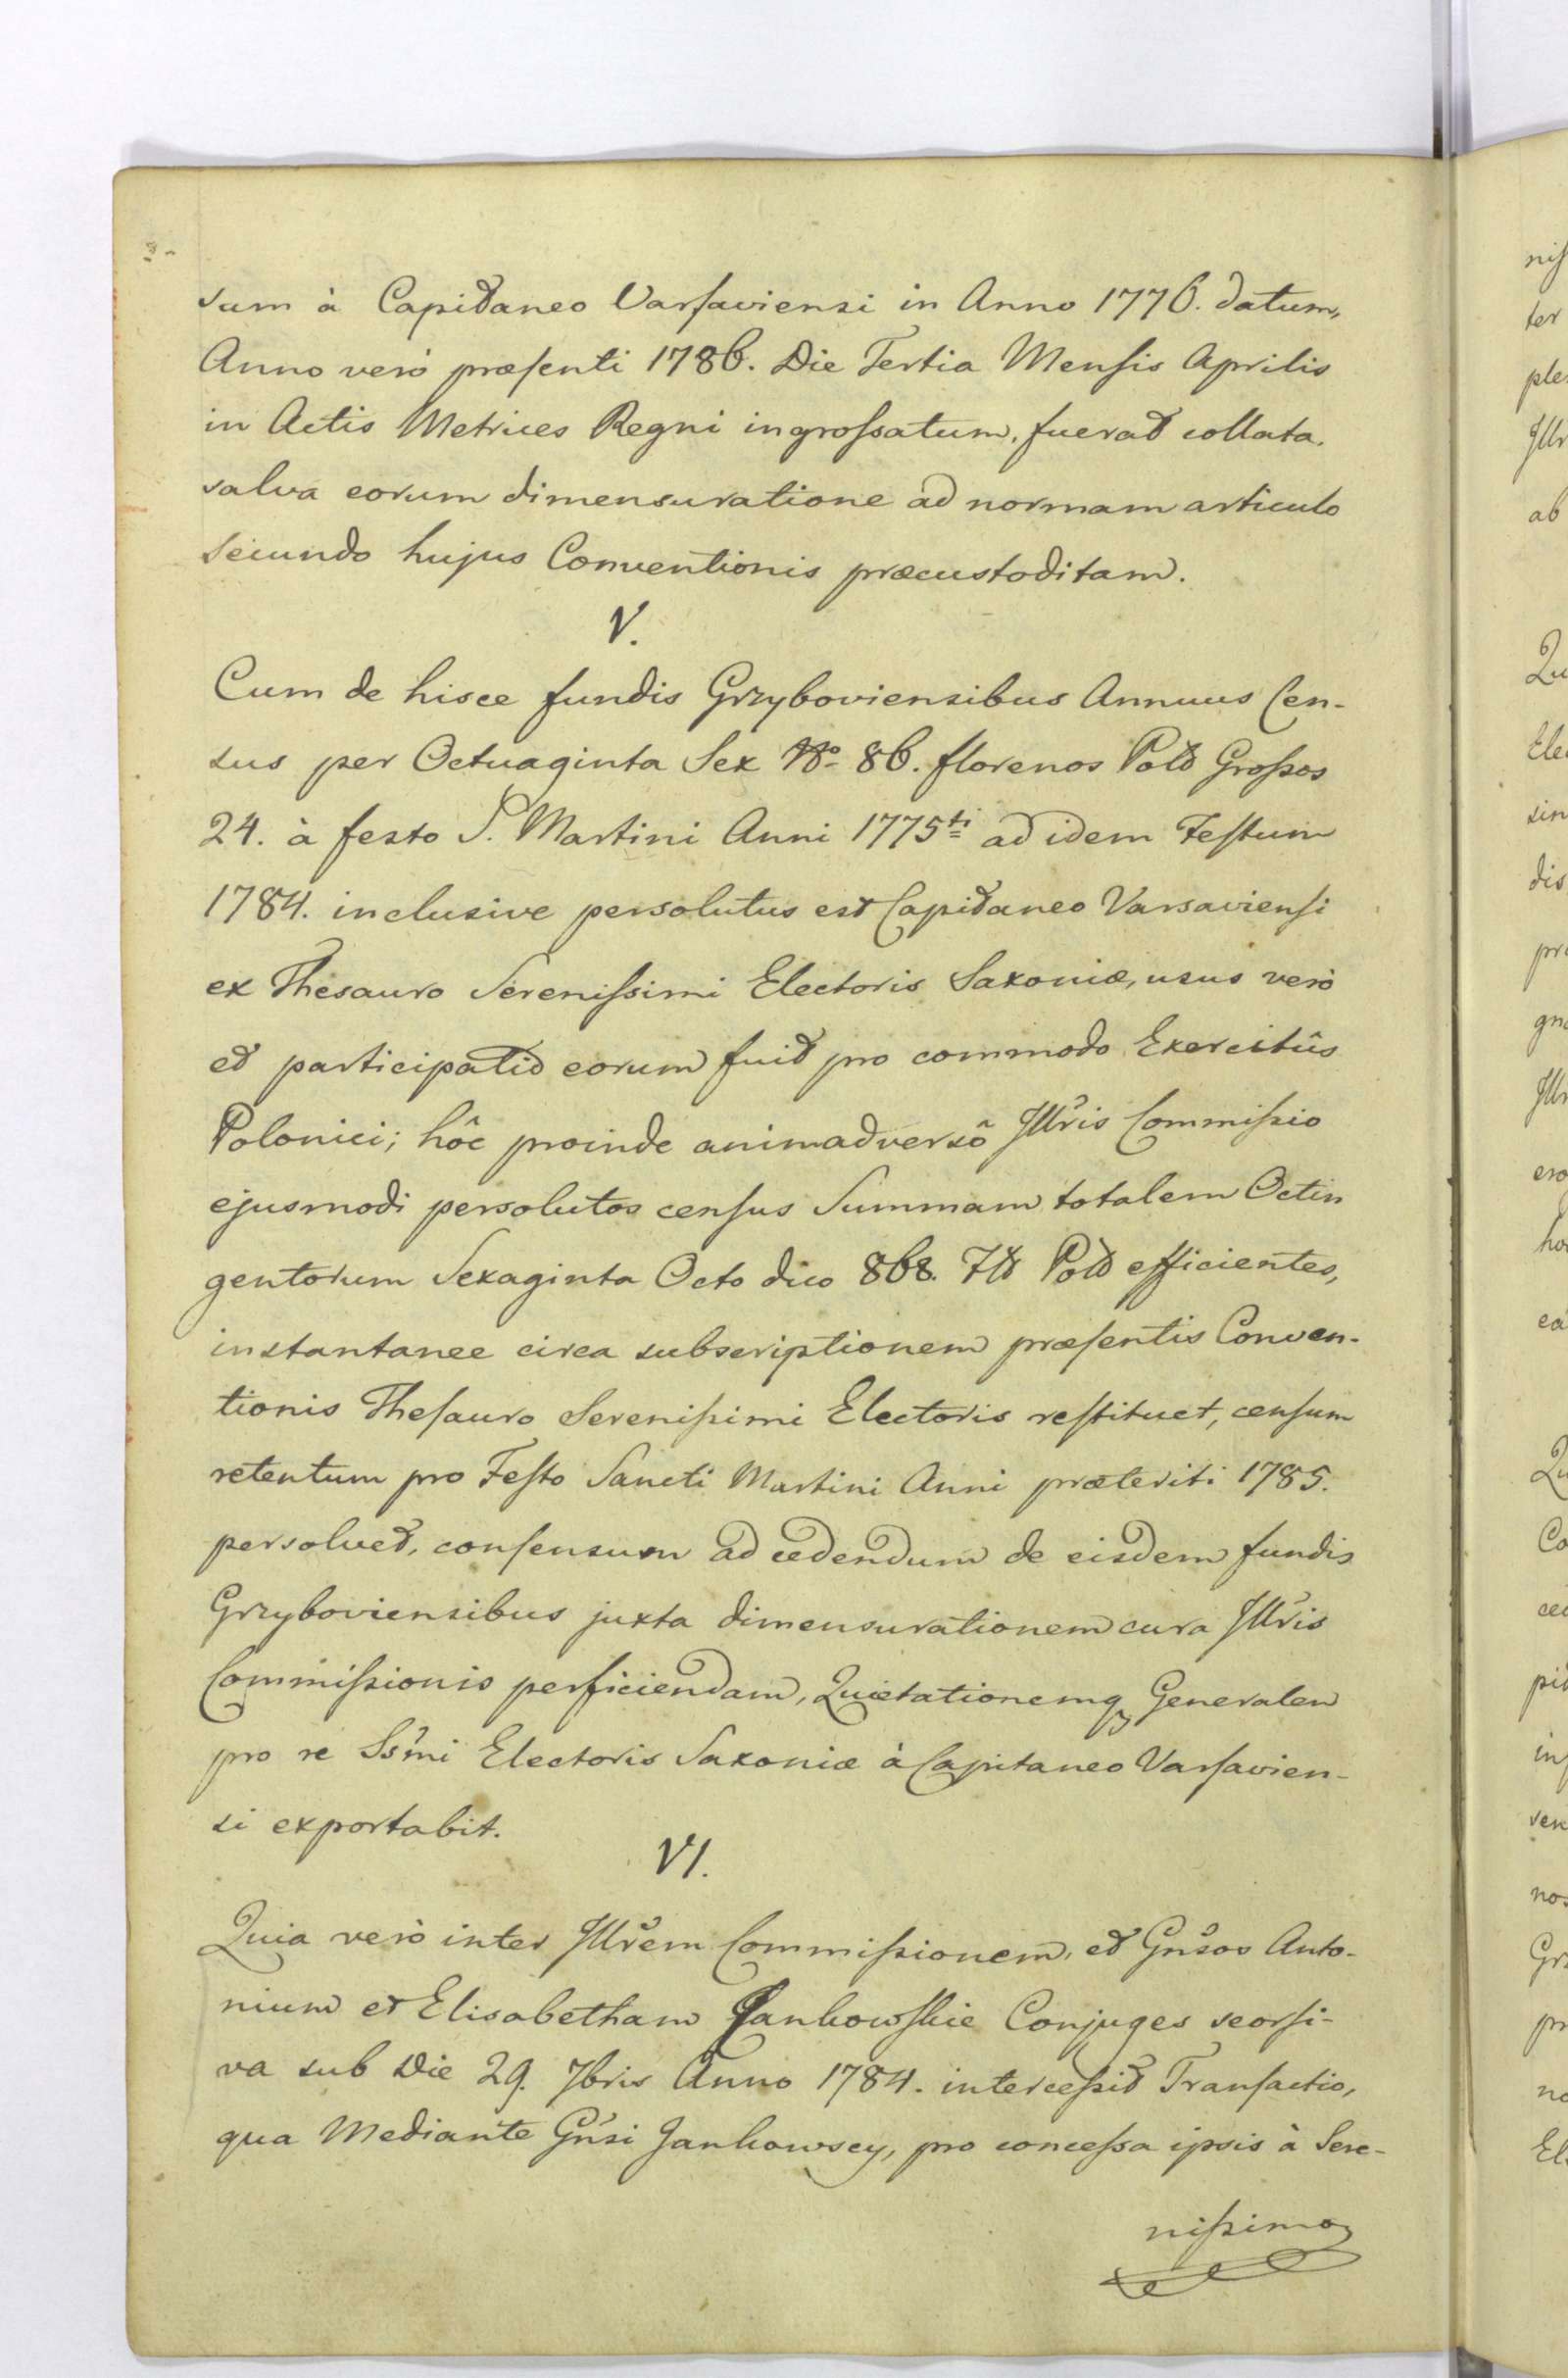 sum à Capitaneo Varsaviensi in Anno 1776. datum,
Anno verò præsenti 1786. Die Tertia Mensis Aprilis
in Actis Metrices Regni ingrossatum, fuerat collata.
salva eorum dimensuratione ad normam articulo
secundo hujus Conventionis præcustoditam.
V.
Cum de hisce fundis Grzyboviensibus Annuus Cen-
sus per Octuaginta Sex No 86. florenos Pold Grossos
24. à festo S. Martini Anni 1775ti ad idem Festum
1784. inclusive persolutus est Capitaneo Varsaviensi
ex Thesauro Serenissimi Electoris Saxoniæ, usus verò
et participatio eorum fuit pro commodo Exercitûs
Polonici; hôc proinde animadversô Illris Commissio
ejusmodi persolutos census Summam totalem Octin
gentorum Sexaginta Octo dico 868. Pold efficientes,
instantanee circa subscriptionem præsentis Conven-
tionis Thesauro Serenissimi Electoris restituet, censum
retentum pro Festo Sancti Martini Anni præteriti 1785.
persolvet, consensum ad cedendum de eisdem fundis
Grzyboviensibus juxta dimensurationem cura Illris
Commissionis perficiendam, Quietationemq Generalem
pro re Ssmi Electoris Saxoniæ à Capitaneo Varsavien-
si exportabit.
VI.
Quia verò inter Illrem Commissionem, et Gnsos Anto-
nium et Elisabetham Jankowskie Conjuges seorsi-
va sub Die 29. 7bris Anno 1784. intercessit Transactio,
qua Mediante Gnsi Jankowscy, pro concessa ipsis à Sere-
nissimo